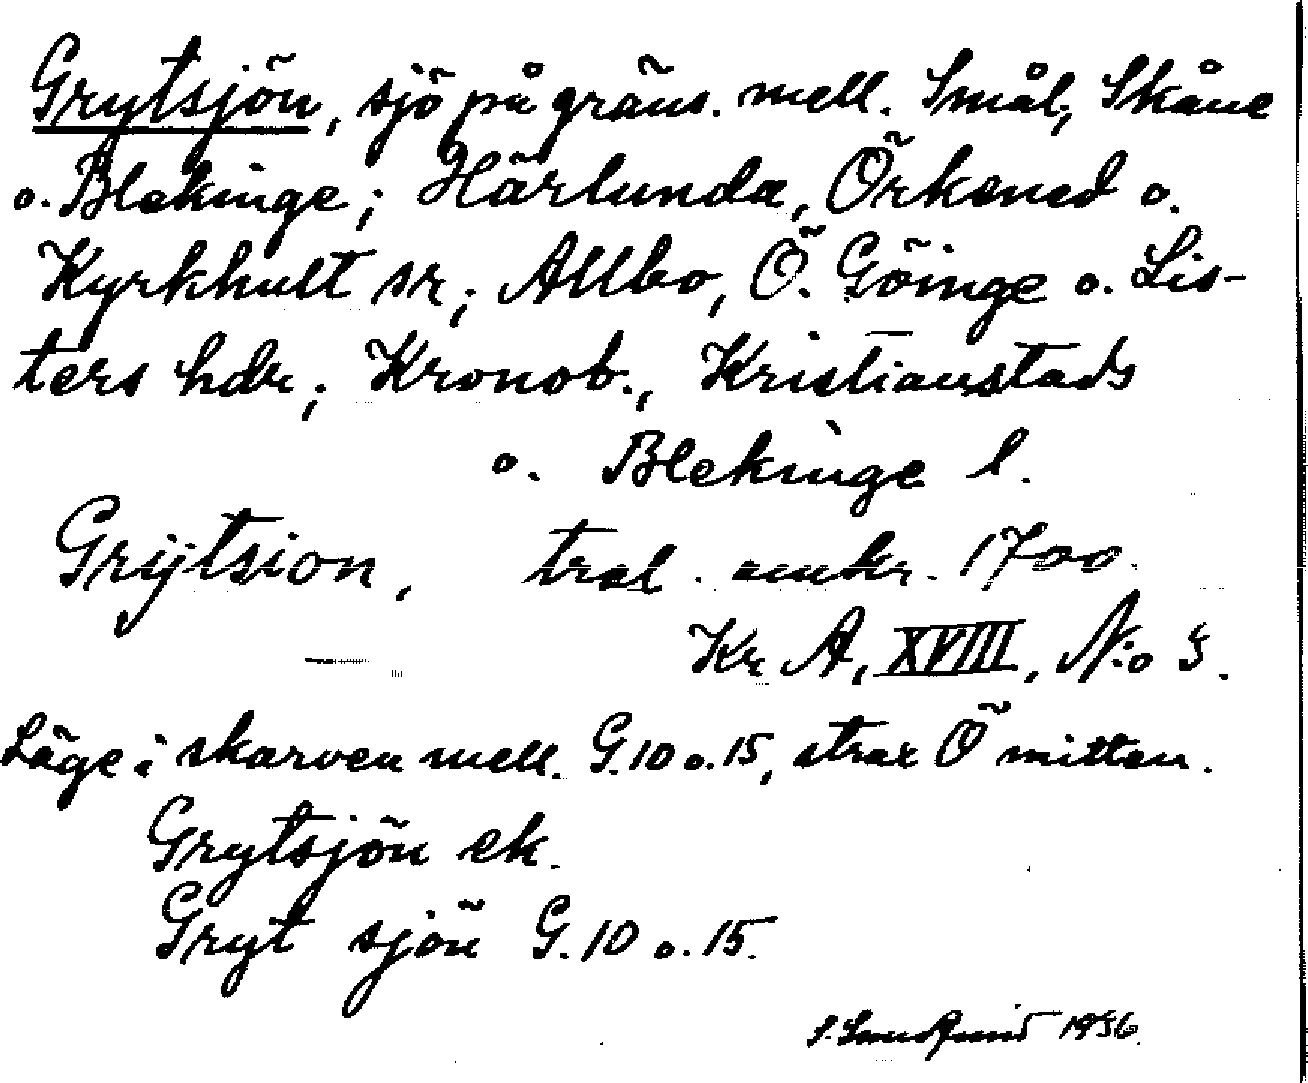 Grytsjön, sjö på gräns. mell. Smål, Skåne
o. Blekinge; Härlunda, Örkened o.
Kyrkhult sr; Allbo, Ö. Göinge o. Lis-
ters hdr; Kronob., Kristianstads
o. Blekinge l.
Grÿtsion, tral. omkr. 1700.
Kr A, XVIII, N:o 3.
Läge: i skarven mell. G.10 o. 15, strax Ö mitten.
Grytsjön ek.
Gryt sjön G.10 o. 15.
1936